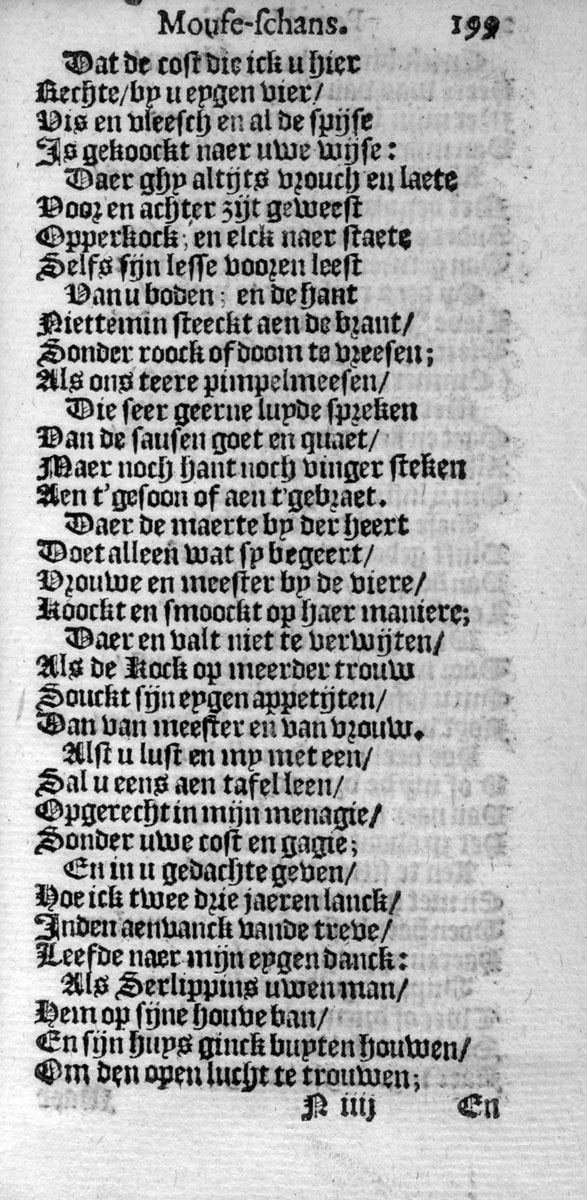 Mouse-schans. 199
Dat de cost die ick u hier
Rechte/by u eygen vier/
Vis en vleesch en al de spijse
Is gekoockt naer uwe wijse:
Daer ghy altijts vrouch en laete
Voor en achter zijt geweest
Opperkock; en elck naer staete
Selfs sijn lesse vooren leest
Van u boden; en de hant
Niettemin steeckt aen de brant/
Sonder roock of doom te vreesen;
Als ons teere pimpelmeesen/
Die seer geerne luyde spreken
Van de sausen goet en quaet/
Maer noch hant noch vinger steken
Aen t'gesoon of aen t'gebraet.
Daer de maerte by der heert
Doet alleen wat sy begeert/
Vrouwe en meester by de viere/
Koockt en smoockt op haer maniere;
Daer en valt niet te verwijten/
Als de Kock op meerder trouw
Souckt sijn eygen appetijten/
Dan van meester en van vrouw.
Alst u lust en my met een/
Sal u eens aen tafel leen/
Opgerecht in mijn menagie/
Sonder uwe cost en gagie;
En in u gedachte geven/
Hoe ick twee drie jaeren lanck/
Inden aenvanck vande treve/
Leefde naer mijn eygen danck:
Als Serlippins uwen man/
Hem op sijne houve van/
En sijn huys ginck buyten houwen/
Om den open lucht te trouwen;
N iiij En